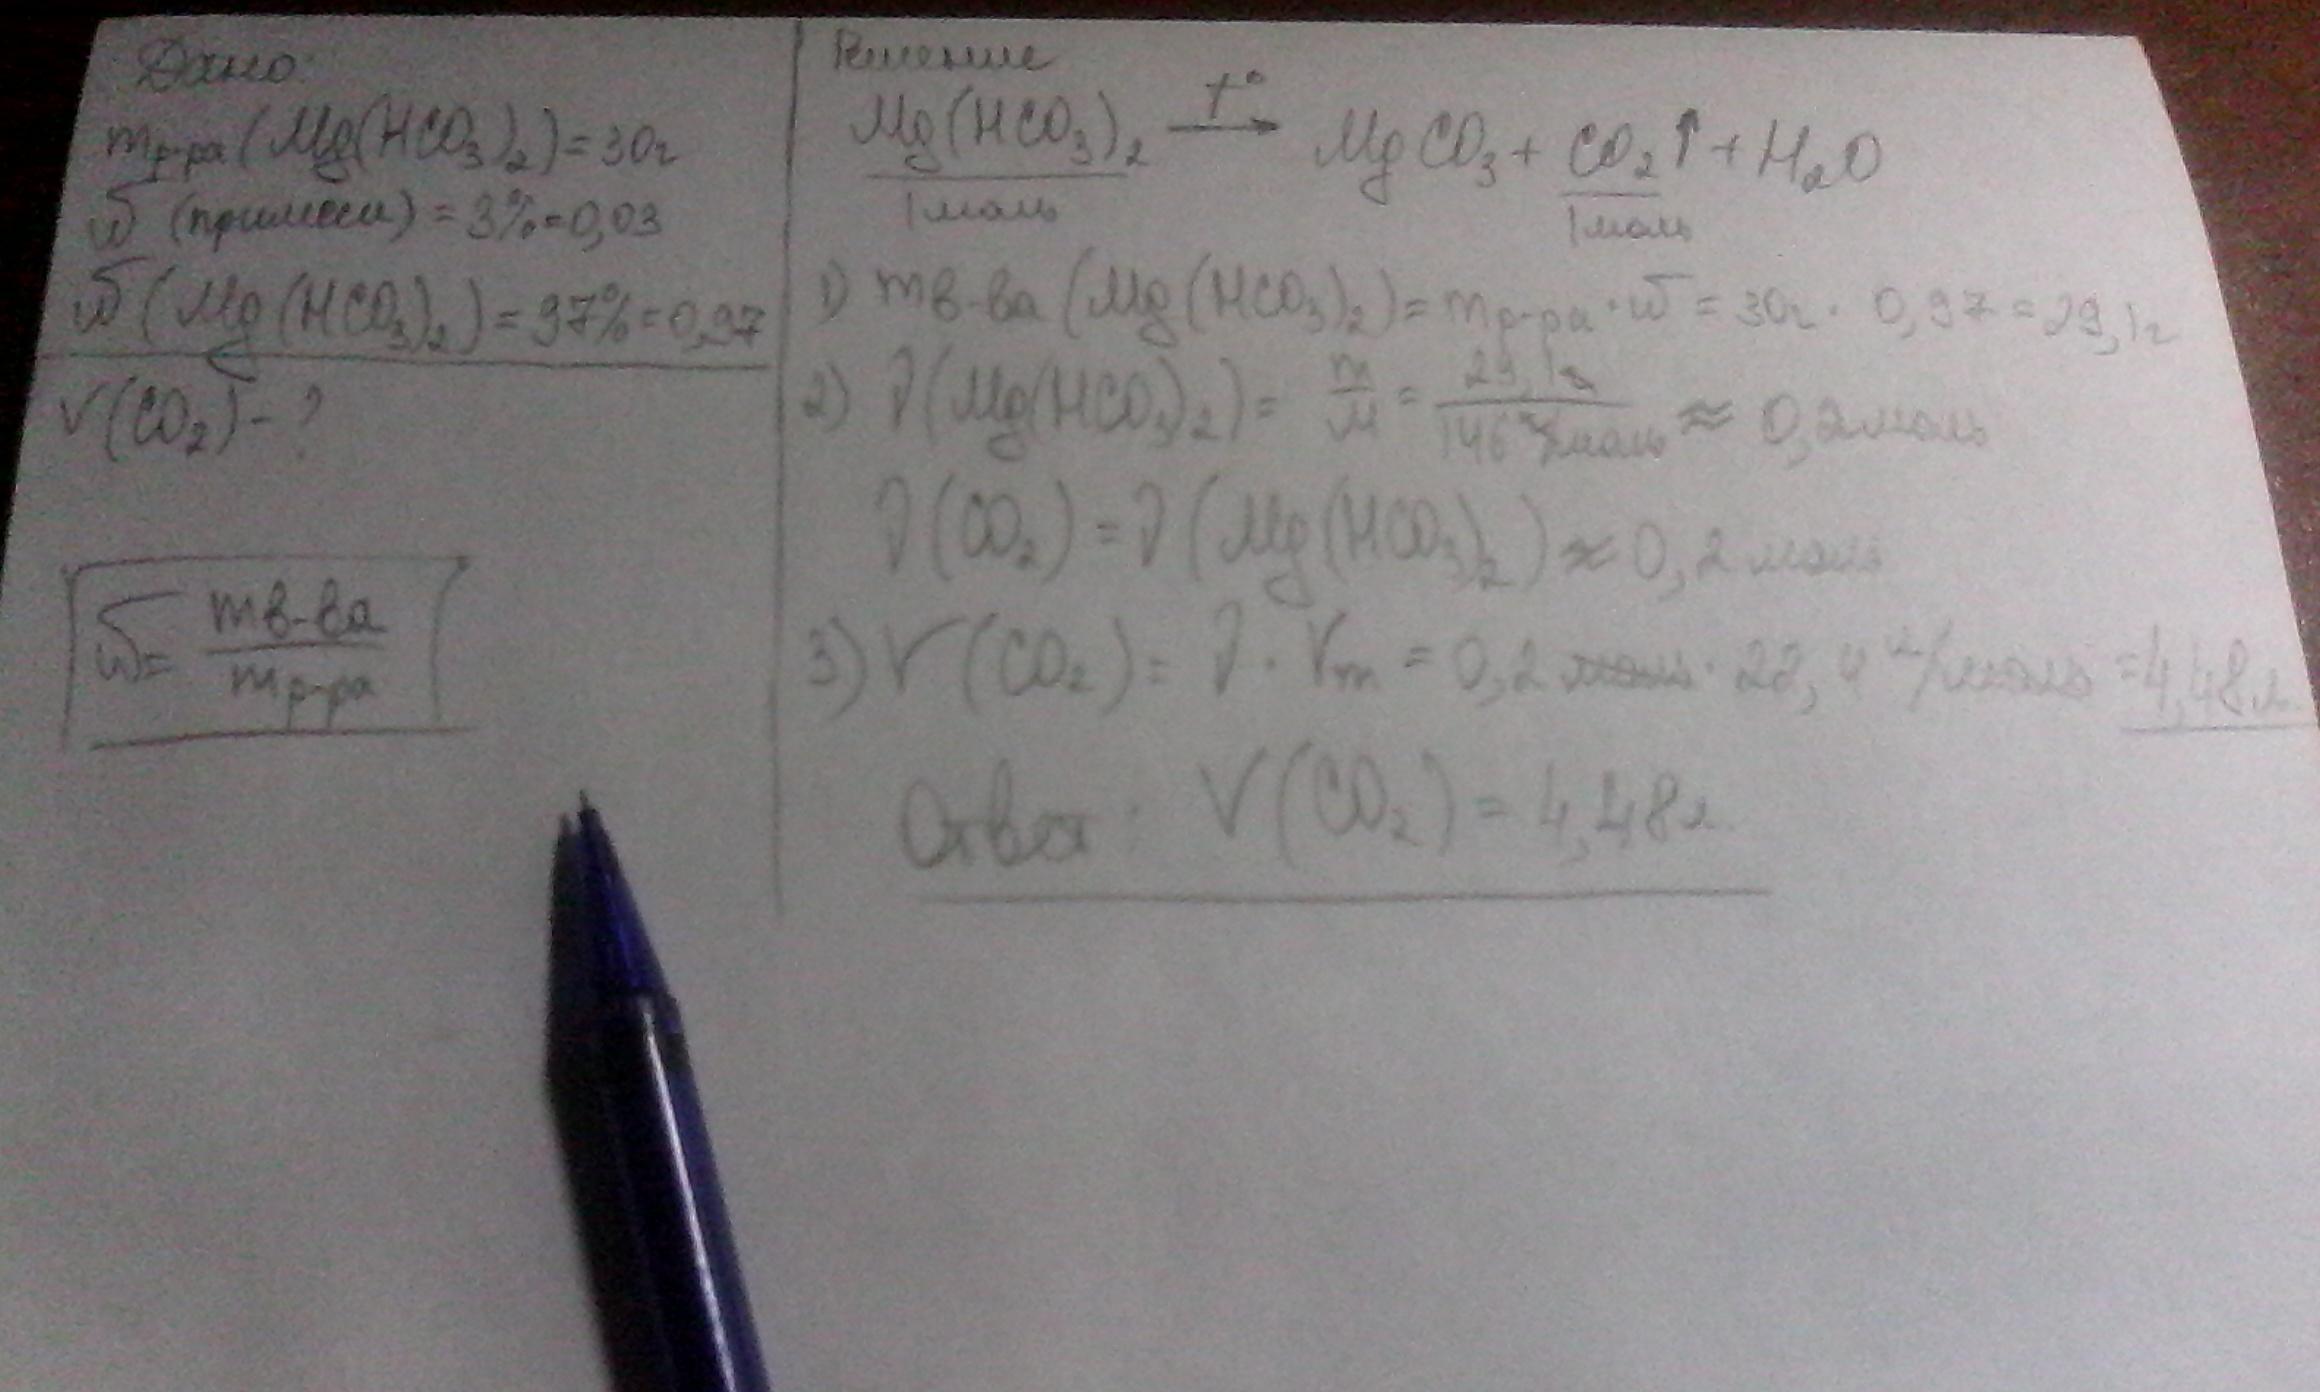 Дано:
mр-ра(Mg(HCO₃)₂)=30г
ω (примеси)=3%=0,03
ω(Mg(HCO₃)₂)=97%=0,97
V(CO₂)-?
ω= mв-ва/mр-ра
Решение
Mg(HCO₃)₂ t°→ MgCO₃+CO₂↑+H₂O
1моль 1моль
1) mв-ва(Mg(HCO₃)₂)=mр-ра·ω=30г·0,97=29,1г
2) ν(Mg(HCO₃)₂)= m/M = 29,1г/146г/моль ≈ 0,2моль
ν(CO₂)=ν(Mg(HCO₃)₂)≈0,2моль
3) V(CO₂)= ν·Vm = 0,2моль·22,4л/моль=4,48л
Ответ: V(CO₂)=4,48л.